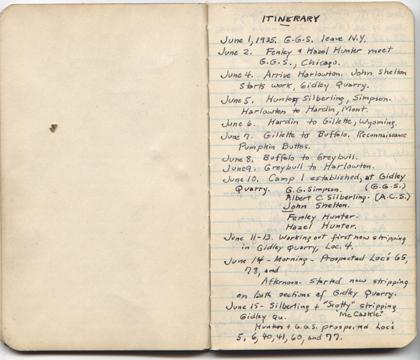 ITINERARY
June 1, 1935. G.G.S. leave N.Y.
June 2. Fenley & Hazel Hunter meet
G.G.S., Chicago.
June 4. Arrive Harlowton. John Shelton
starts work, Gidley Quarry.
June 5. Hunters, Silberling, Simpson.
Harlowton to Hardin, Mont.
June 6. Hardin to Gillette, Wyoming.
June 7. Gillette to Buffalo. Reconnaissance
Pumpkin Buttes.
June 8. Buffalo to Greybull.
June 9. Greybull to Harlowton.
June 10. Camp 1 established, at Gidley
Quarry. G.G. Simpson. (G.G.S.)
Albert C. Silberling. (A.C.S.)
John Shelton.
Fenley Hunter.
Hazel Hunter.
June 11-13. Working out first new stripping
in Gidley Quarry, Loc. 4.
June 14 - Morning - Prospected Loc's 65,
73, and
Afternoon. Started new stripping
on both sections of Gidley Quarry.
June 15 - Silberling + "Scotty" stripping
Gidley Qu. McCaskie
Hunters + G.G.S. prospected Loc's
5, 6, 40, 41, 60, and 77.